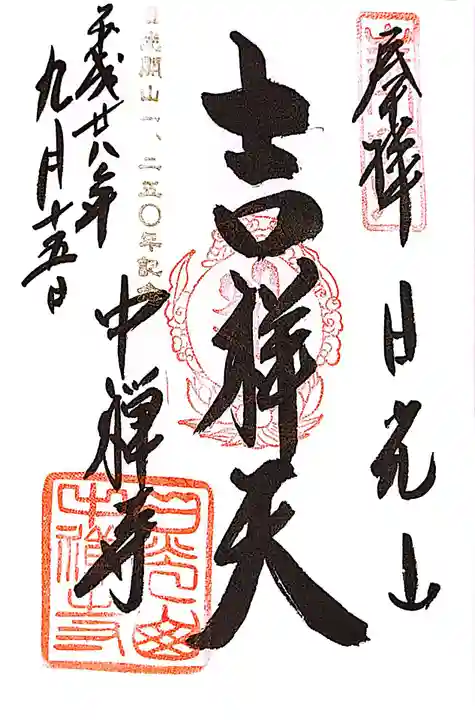 奉拝
日光山
吉祥天
中禅寺
日光開山一、二五〇年記念
平成廿八年
九月十五日
日光山
中禅寺